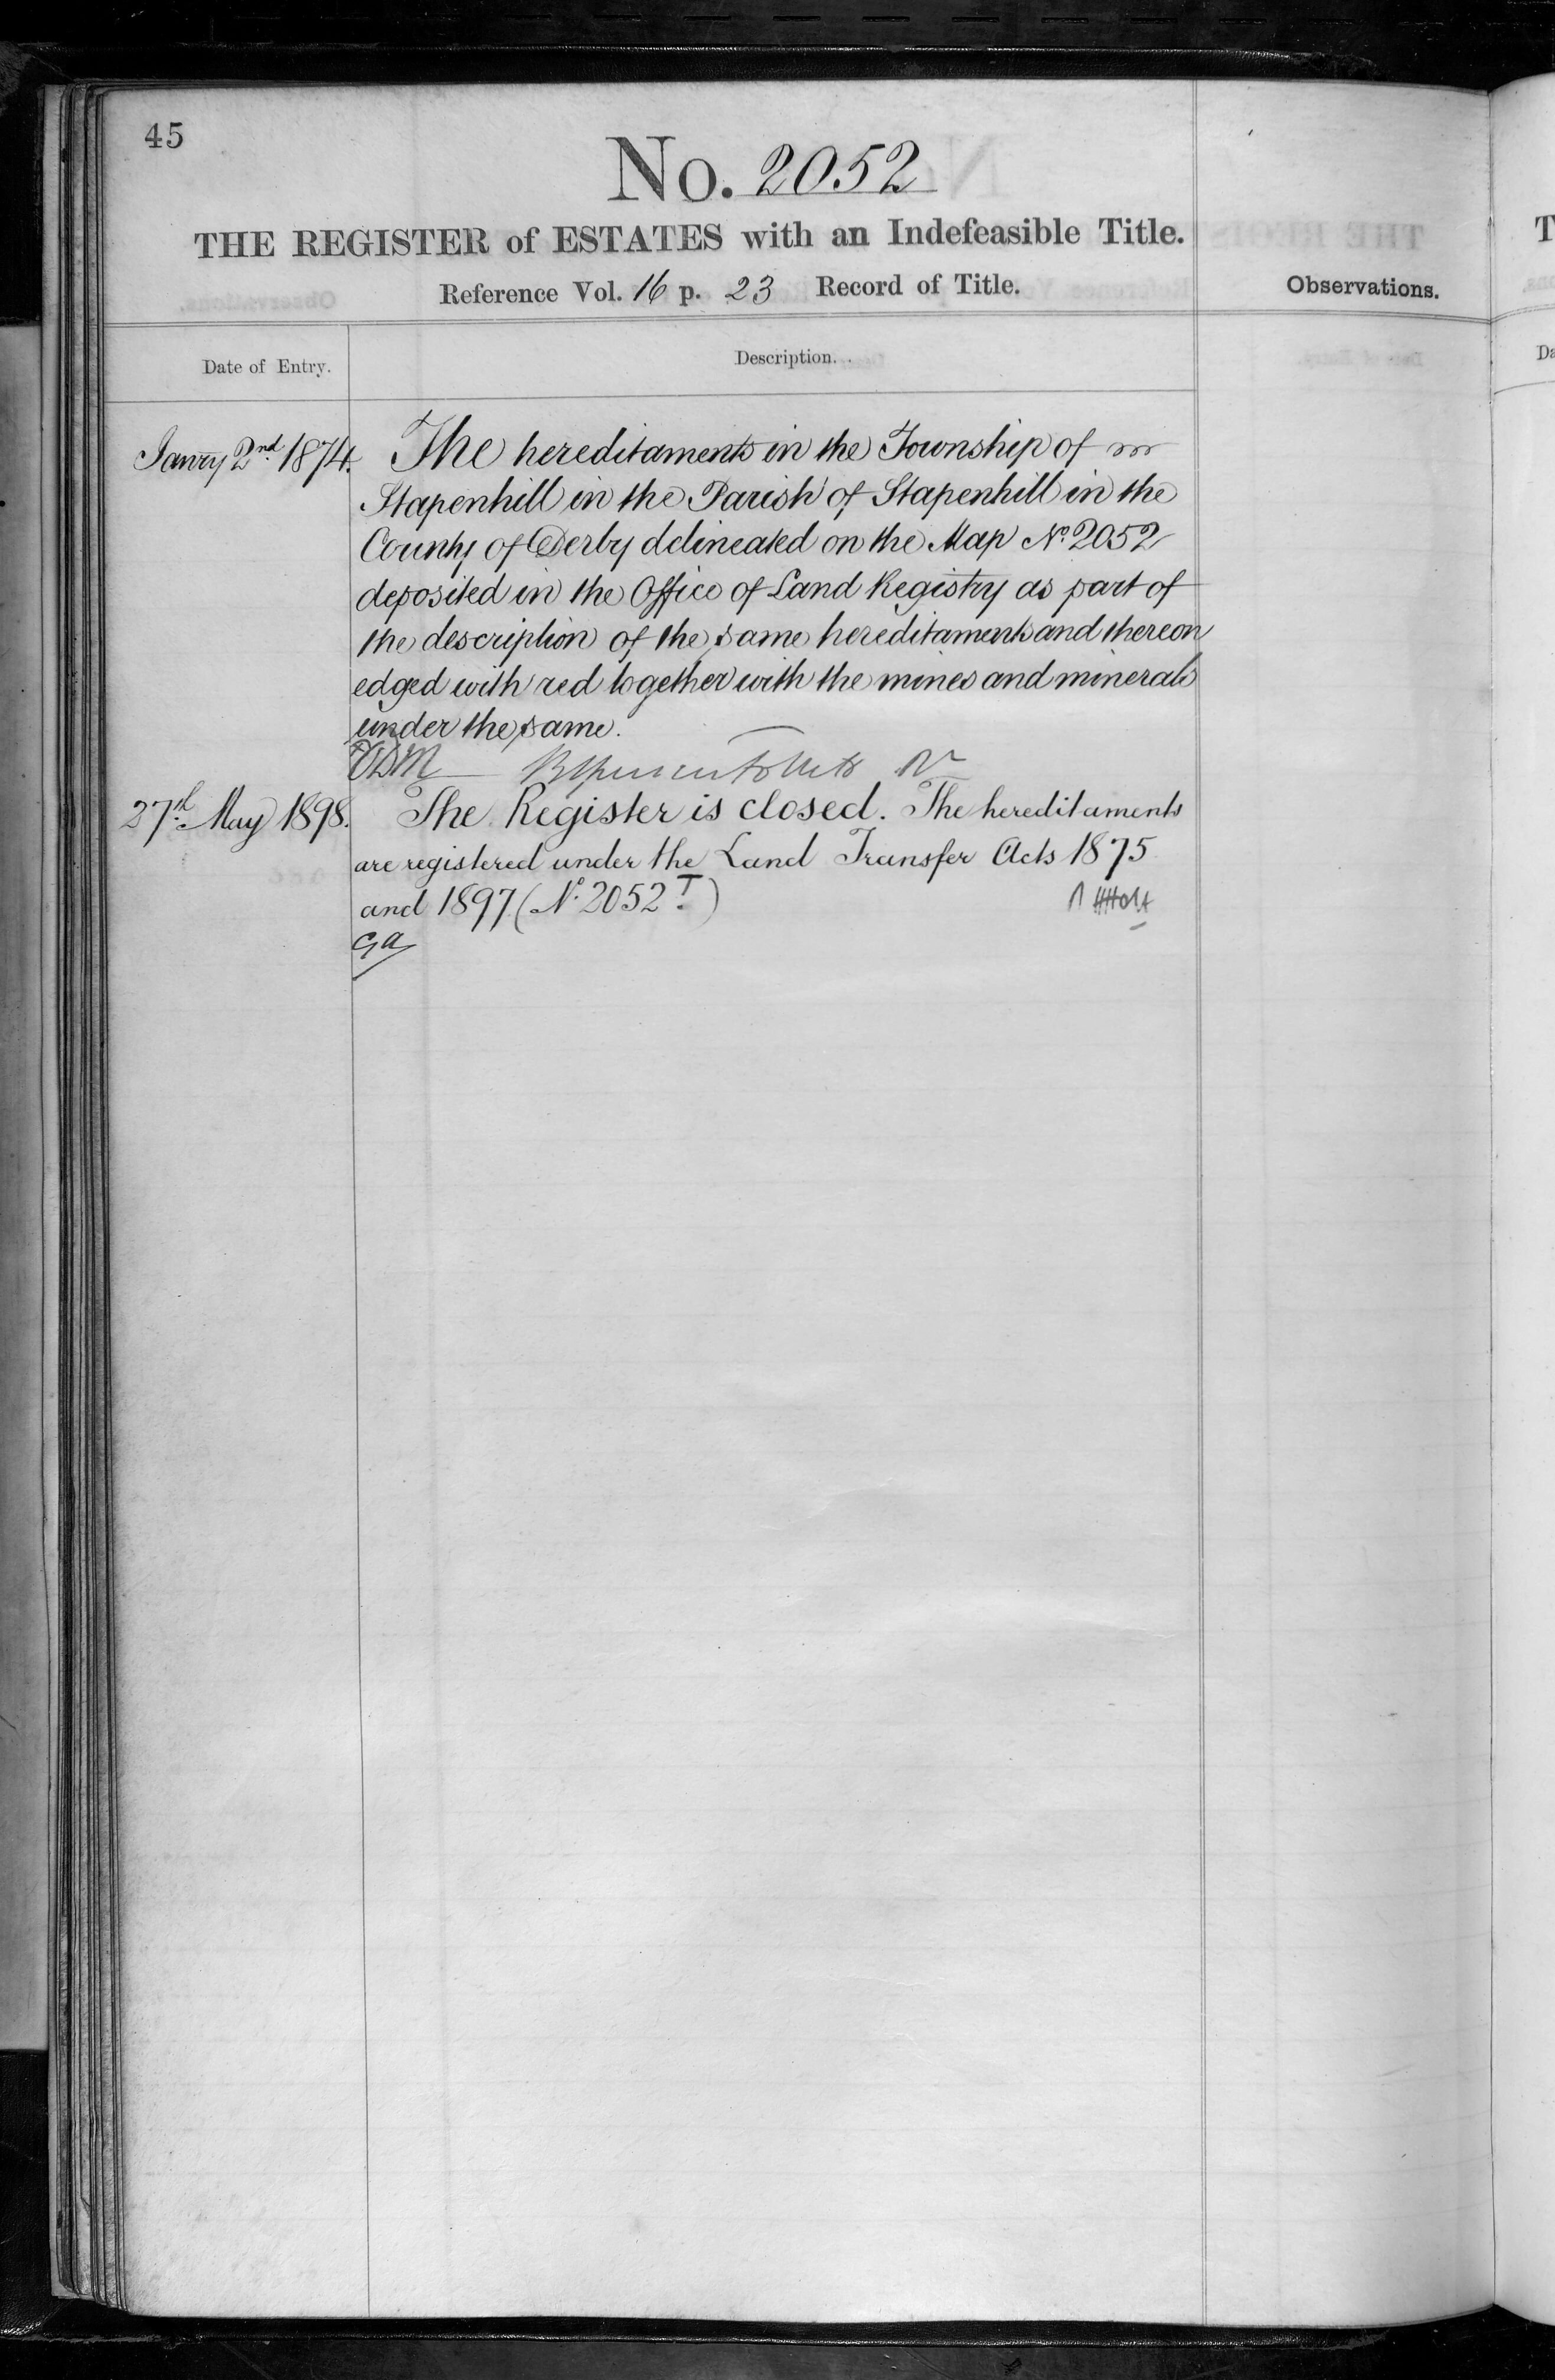 45
No. 2052
THE REGISTER of ESTATES with an Indefeasible Title.
Reference Vol. 16 p. 23 Record of Title.
Observations.
Date of Entry.
Description.
Janry 2nd 1874.
The hereditaments in the Township of
Stapenhill in the Parish of Stapenhill in the
County of Derby delineated on the Map No. 2052
deposited in the Office of Land Registry as part of
the description of the same hereditaments and thereon
edged with red together with the mines and minerals
under the same.
27th May 1898.
The Register is closed. The hereditaments
are registered under the Land Transfer Acts 1875
and 1897 (No. 2052 T)